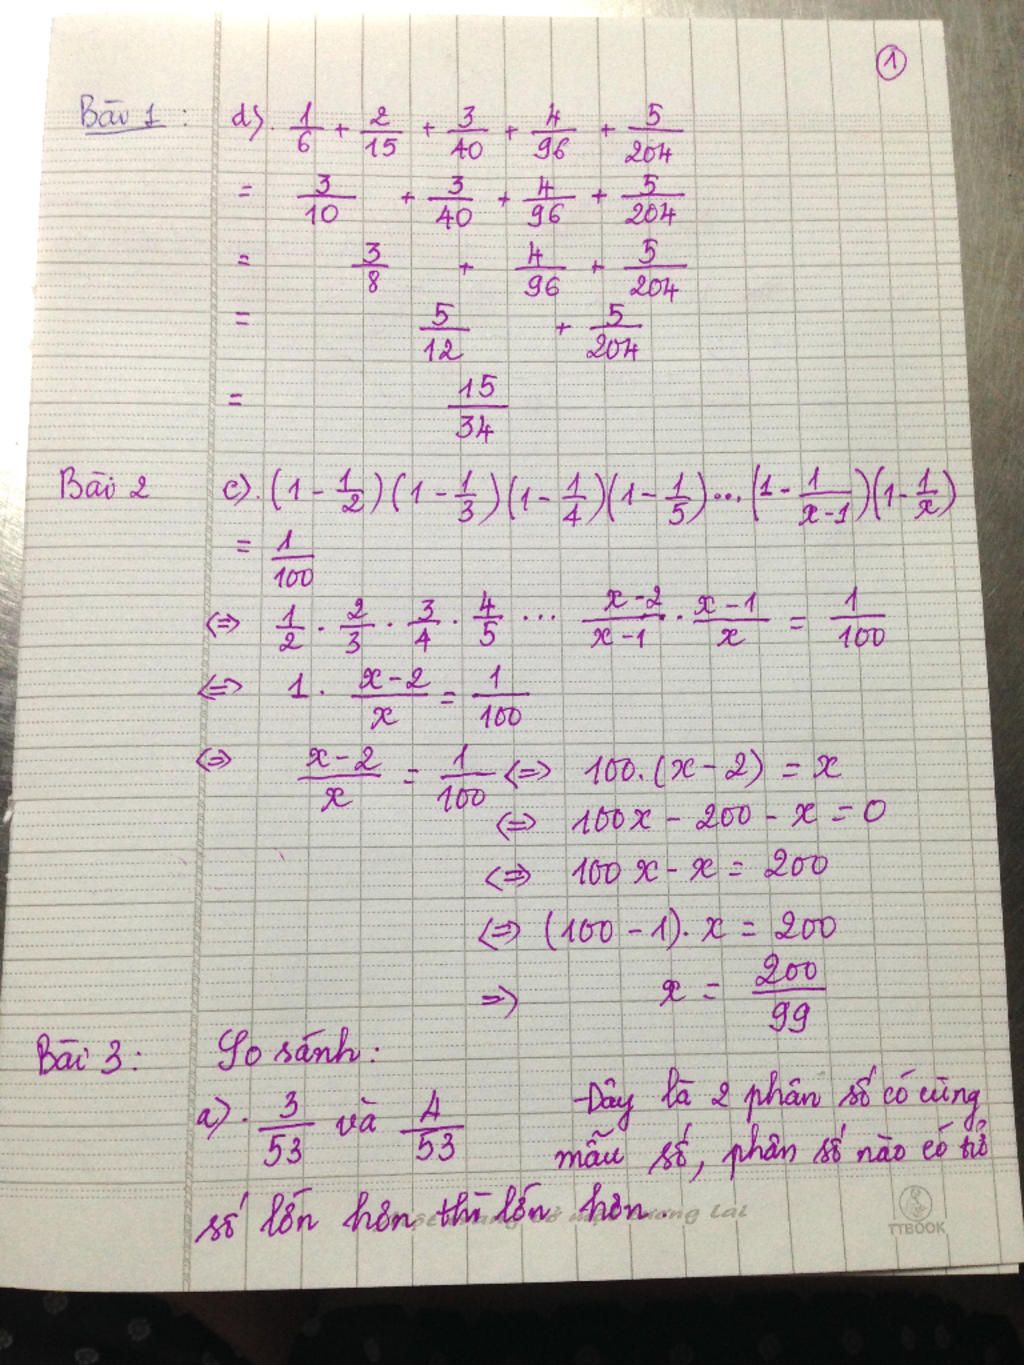 1
Bài 1 : d). 1/6 + 2/15 + 3/40 + 4/96 + 5/204
= 3/10 + 3/40 + 4/96 + 5/204
= 3/8 + 4/96 + 5/204
= 5/12 + 5/204
= 15/34
Bài 2 c). (1 - 1/2)(1 - 1/3)(1 - 1/4)(1 - 1/5)...(1 - 1/x-1)(1 - 1/x)
= 1/100
⇔ 1/2 . 2/3 . 3/4 . 4/5 ... x-2/x-1 . x-1/x = 1/100
⇔ 1 . x-2/x = 1/100
⇔ x-2/x = 1/100 ⇔ 100.(x-2) = x
⇔ 100x - 200 - x = 0
⇔ 100x - x = 200
⇔ (100 - 1). x = 200
⇒ x = 200/99
Bài 3 : So sánh :
a). 3/53 và 4/53 Đây là 2 phân số có cùng
mẫu số, phân số nào có tử
số lớn hơn thì lớn hơn.
tương lai
TTBOOK